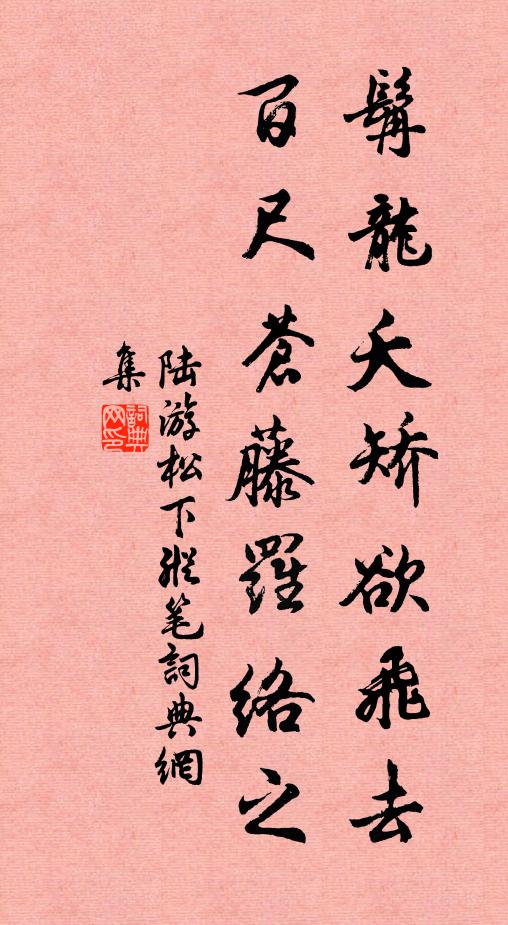 髯龍夭矯欲飛去
百尺蒼藤羅絡之
陸游松下縱笔詞典網
集
詞典网印